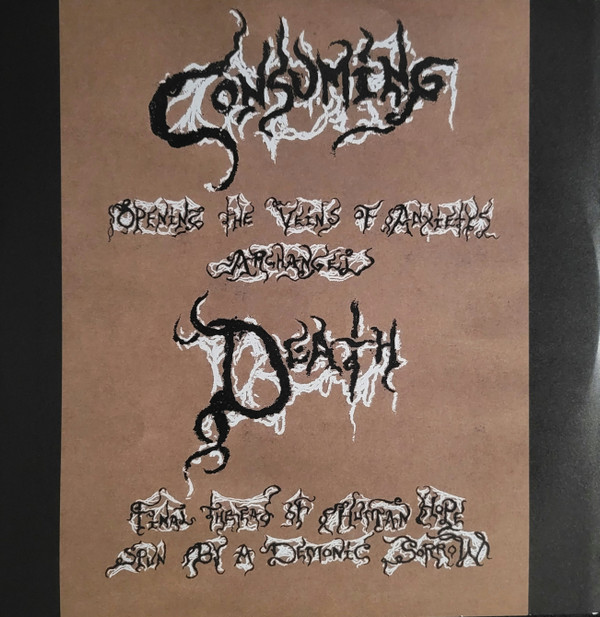 Consuming
Opening the Veins of Anxietys
Archangel
Death
Final Thread of Human Hope
Spun By A Demonic Sorrow